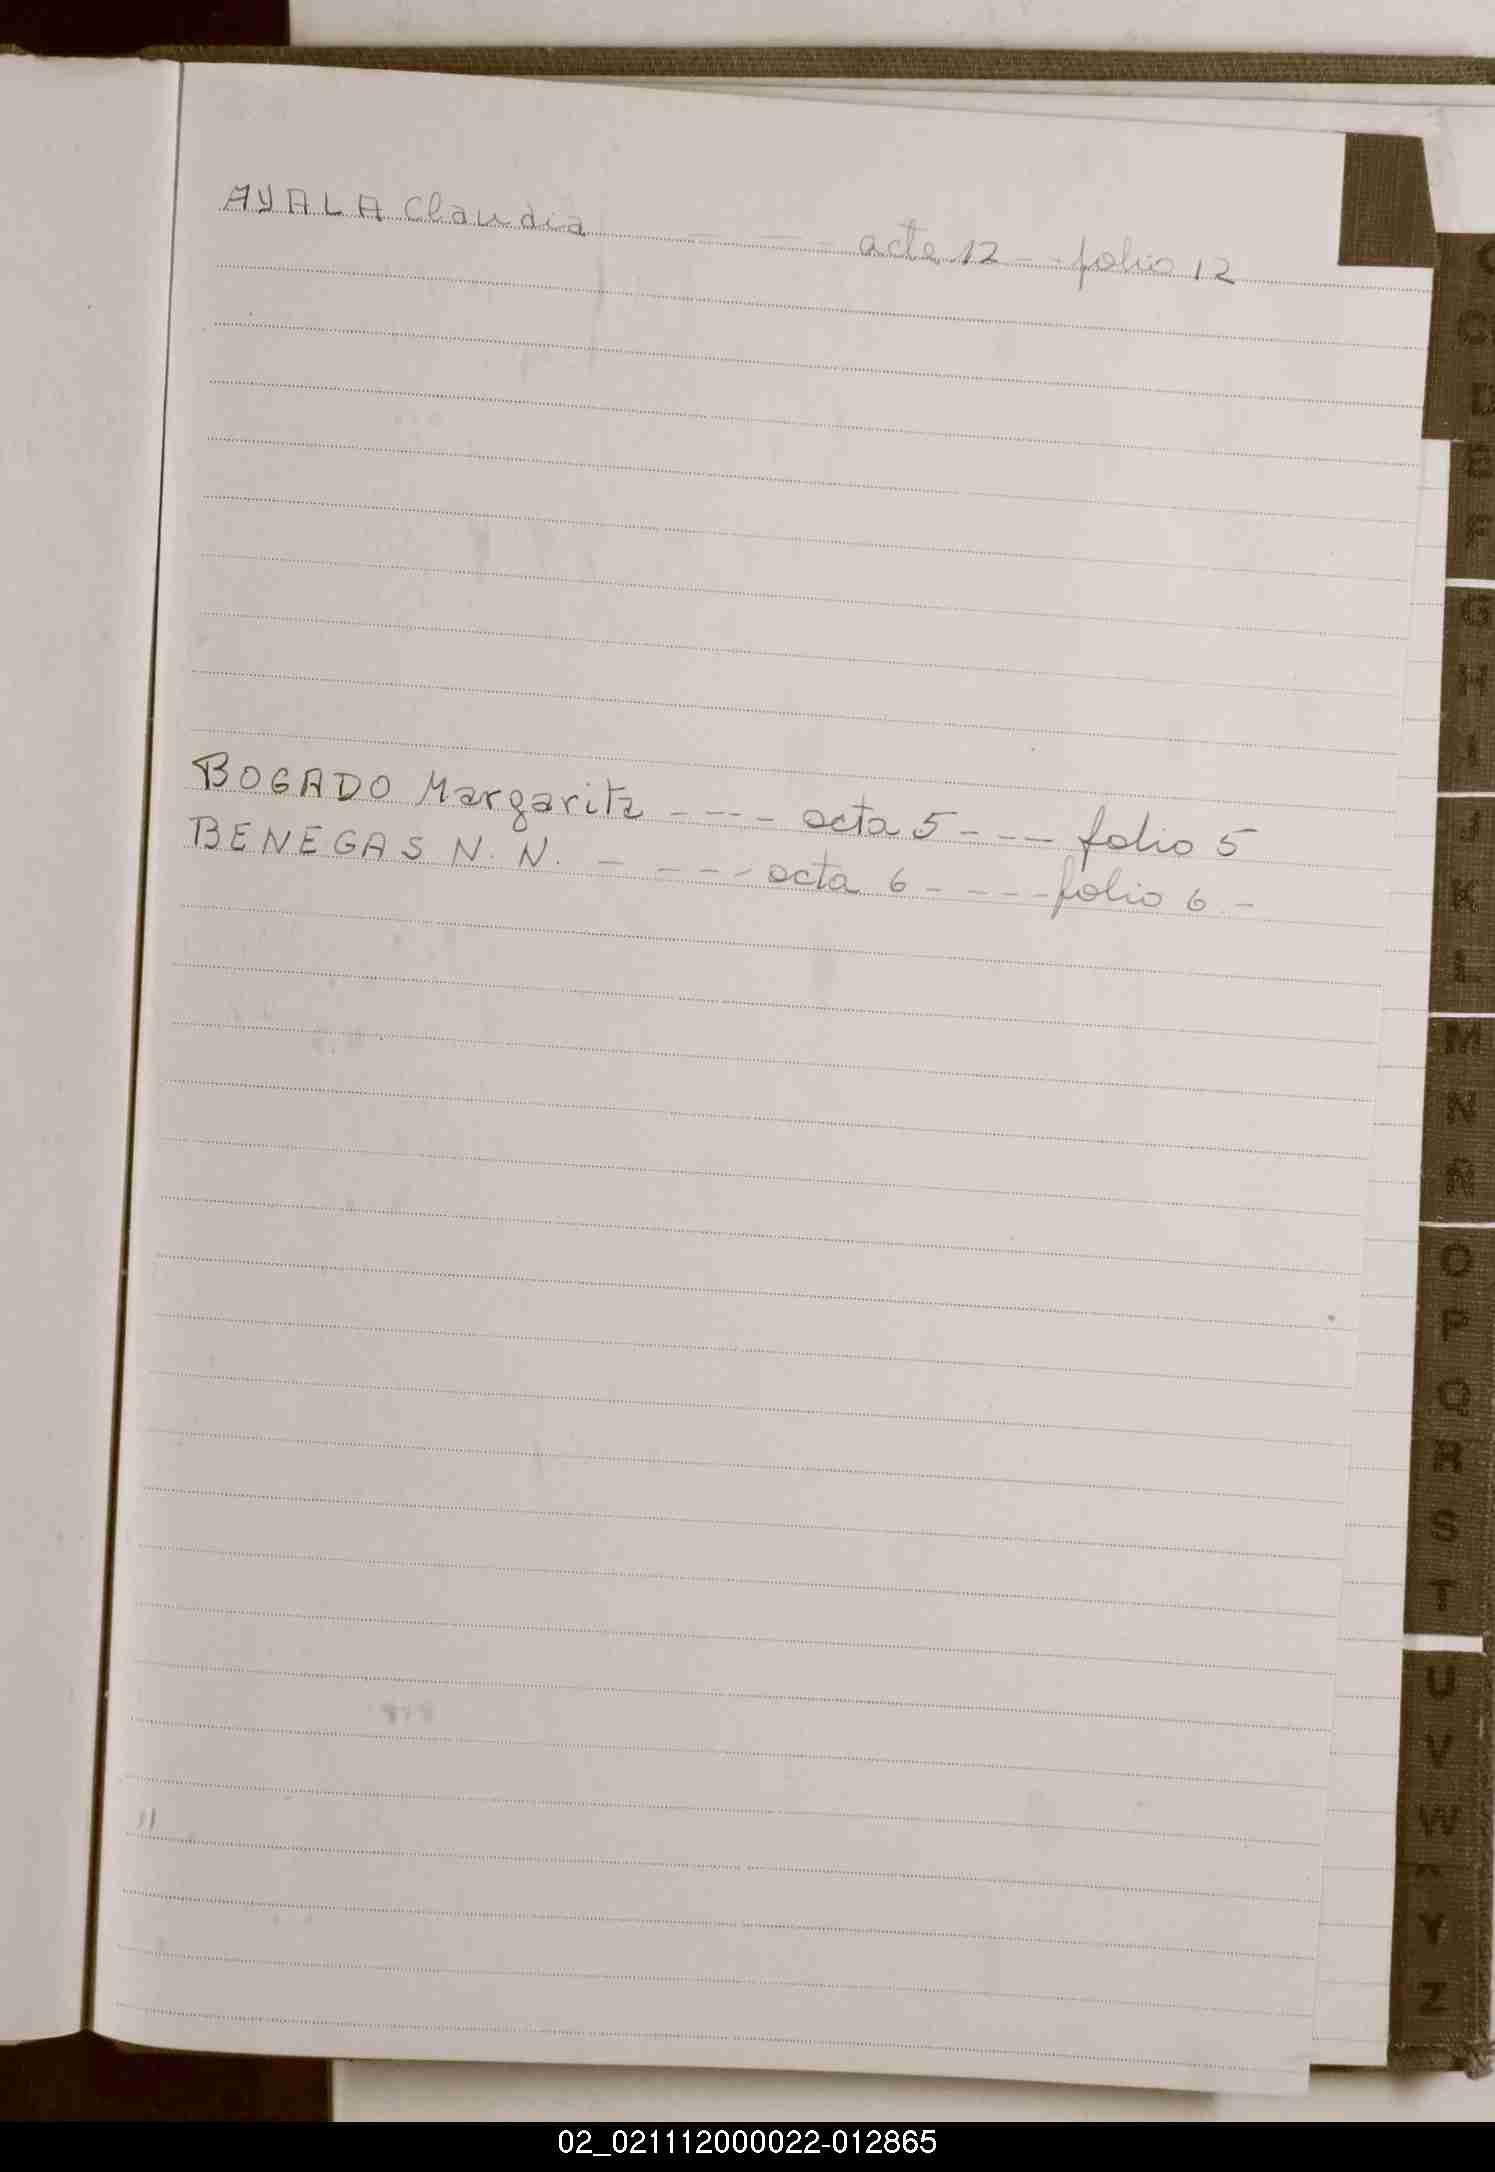 AYALA Claudia - - - acta 12 - - folio 12
BOGADO Margarita - - - - acta 5 - - - folio 5
BENEGAS N. N. - - - - - acta 6 - - - - folio 6 -
C
D
E
F
G
H
I
J
K
L
M
N
Ñ
O
P
Q
R
S
T
U
V
W
Y
Z
02_021112000022-012865